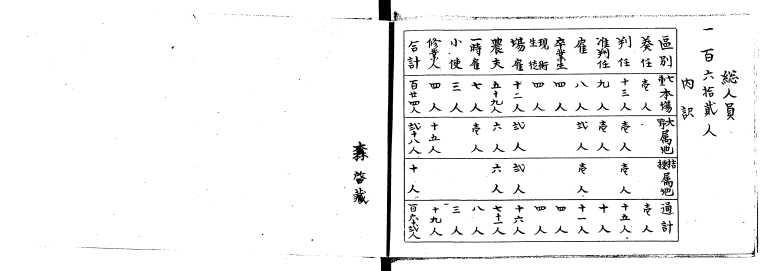 総人員
一百六拾貳人
内訳
区別 七重本場 大野属地 桔梗属地 通計
奏任 壱人 壱人
判任 十三人 壱人 壱人 十五人
准判任 九人 壱人 十人
雇 八人 弐人 壱人 十一人
卒業生 四人 四人
現術生徒 四人 四人
場雇 十二人 弐人 弐人 十六人
農夫 五十九人 六人 六人 七十一人
一時雇 七人 壱人 八人
小使 三人 三人
修業人 四人 十五人 十九人
合計 百廿四人 弐十八人 十人 百六十弐人
森 啓蔵